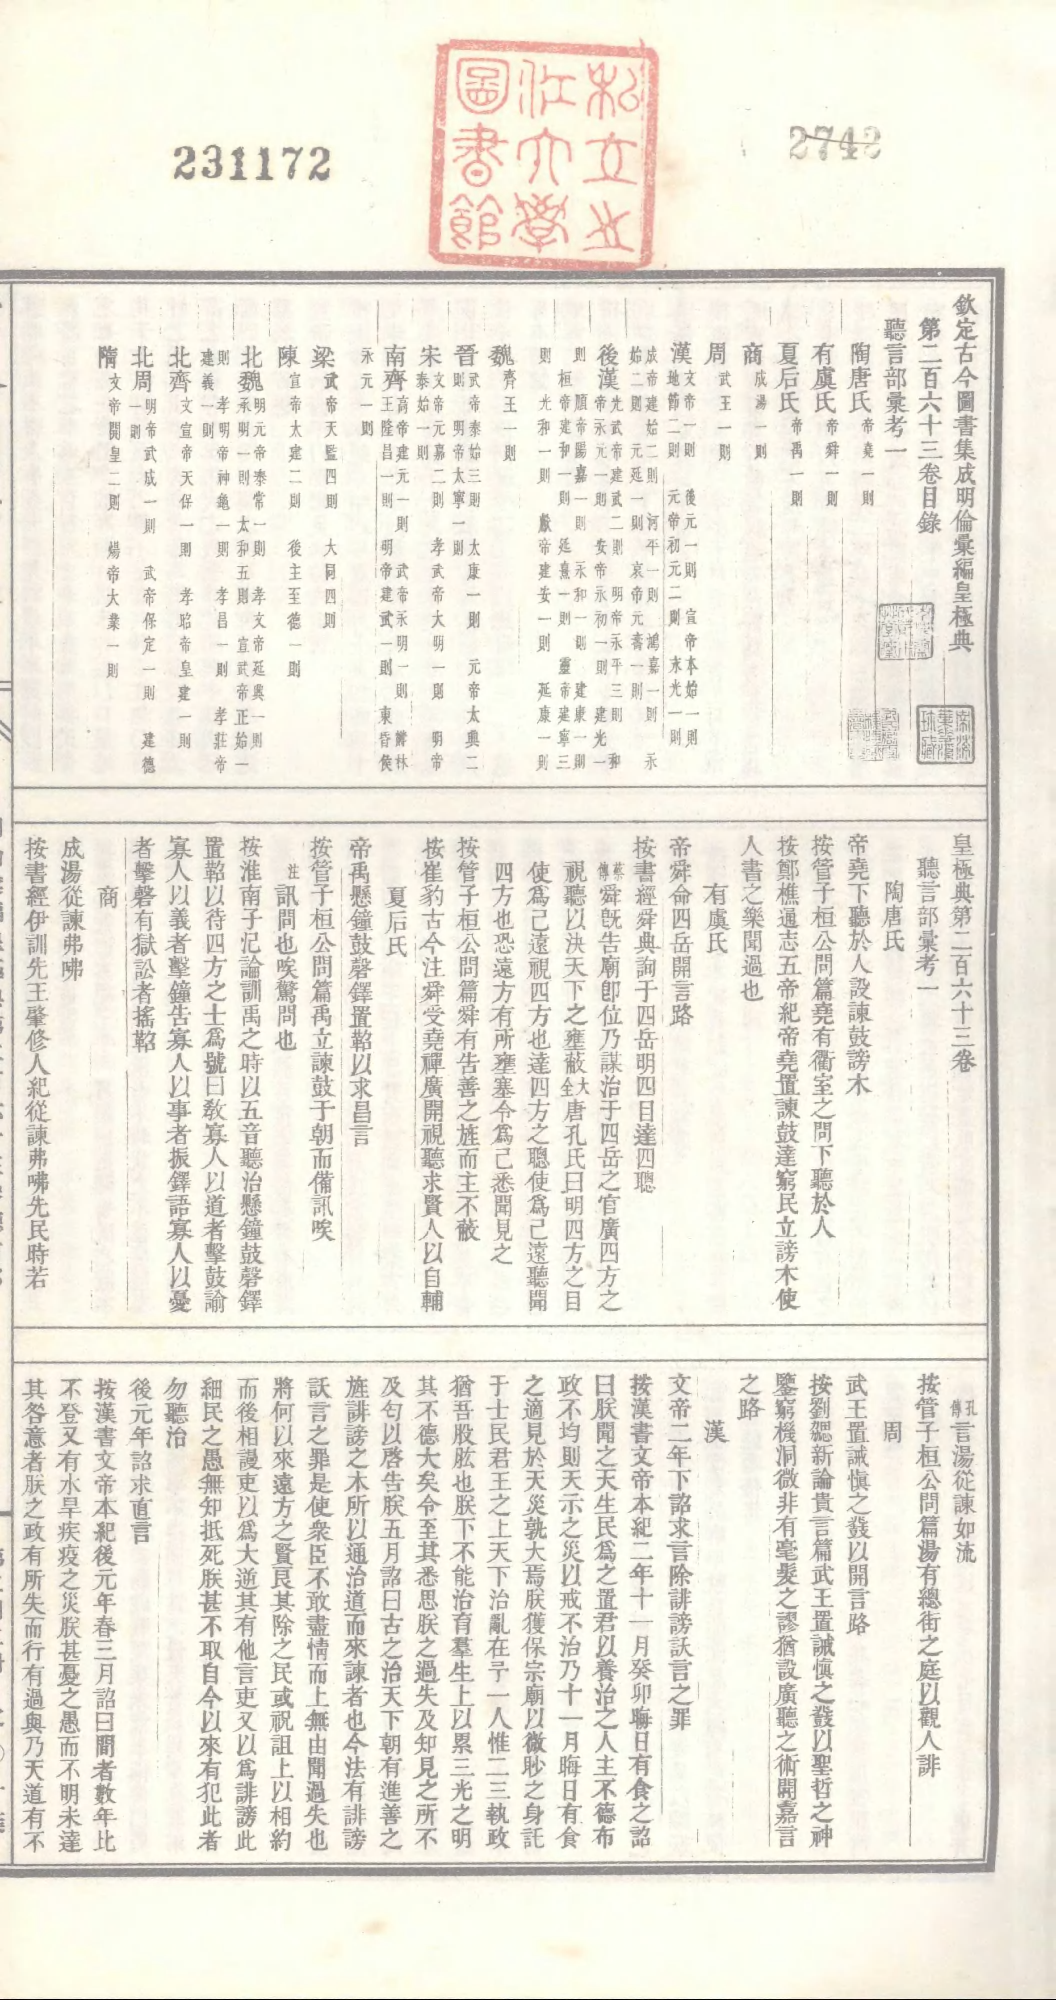 231172
2742
私立江蘇大學圖書館
欽定古今圖書集成明倫彙編皇極典
第二百六十三卷目錄
聽言部彙考一
陶唐氏帝堯一則
有虞氏帝舜一則
夏后氏帝禹一則
商成湯一則
周武王一則
漢文帝一則 後元一則 宣帝本始一則 地節二則 元帝初元二則 永光一則
成帝建始二則 河平一則 鴻嘉一則 永始二則 元延一則 哀帝元壽一則
後漢光武帝建武二則 明帝永平三則 和帝永元一則 安帝永初一則 建光一
則 順帝陽嘉一則 永和一則 建康一則 桓帝建和一則 延熹一則 靈帝建寧三
則 光和一則 獻帝建安一則 延康一則
魏齊王一則
晉武帝泰始三則 太康一則 元帝太興二則 明帝太寧一則
宋文帝元嘉二則 孝武帝大明一則 明帝泰始一則
南齊高帝建元一則 武帝永明一則 鬱林王隆昌一則 明帝建武一則 東昏侯
永元一則
梁武帝天監四則 大同四則
陳宣帝太建二則 後主至德一則
北魏明元帝泰常一則 孝文帝延興一則 承明一則 太和五則 宣武帝正始一
則 孝明帝神龜一則 孝昌一則 孝莊帝建義一則
北齊文宣帝天保一則 孝昭帝皇建一則
北周明帝武成一則 武帝保定一則 建德一則
隋文帝開皇二則 煬帝大業一則
皇極典第二百六十三卷
聽言部彙考一
陶唐氏
帝堯下聽於人設諫鼓謗木
按管子桓公問篇堯有衢室之問下聽於人
按鄭樵通志五帝紀帝堯置諫鼓達窮民立謗木使
人書之樂聞過也
有虞氏
帝舜命四岳開言路
按書經舜典詢于四岳明四目達四聰
蔡傳舜旣告廟卽位乃謀治于四岳之官廣四方之
視聽以決天下之壅蔽大全唐孔氏曰明四方之目
使爲己遠視四方也達四方之聰使爲己遠聽聞
四方也恐遠方有所壅塞令爲己悉聞見之
按管子桓公問篇舜有告善之旌而主不蔽
按崔豹古今注舜受堯禪廣開視聽求賢人以自輔
夏后氏
帝禹懸鐘鼓磬鐸置鞀以求昌言
按管子桓公問篇禹立諫鼓于朝而備訊唉
註訊問也唉驚問也
按淮南子氾論訓禹之時以五音聽治懸鐘鼓磬鐸
置鞀以待四方之士爲號曰敎寡人以道者擊鼓諭
寡人以義者擊鐘告寡人以事者振鐸語寡人以憂
者擊磬有獄訟者搖鞀
商
成湯從諫弗咈
按書經伊訓先王肇修人紀從諫弗咈先民時若
孔傳言湯從諫如流
按管子桓公問篇湯有總街之庭以觀人誹
周
武王置誡愼之鼗以開言路
按劉勰新論貴言篇武王置誡愼之鼗以聖哲之神
鑒窮機洞微非有毫髮之謬猶設廣聽之術開嘉言
之路
漢
文帝二年下詔求言除誹謗訞言之罪
按漢書文帝本紀二年十一月癸卯晦日有食之詔
曰朕聞之天生民爲之置君以養治之人主不德布
政不均則天示之災以戒不治乃十一月晦日有食
之適見於天災孰大焉朕獲保宗廟以微眇之身託
于士民君王之上天下治亂在予一人惟二三執政
猶吾股肱也朕下不能治育羣生上以累三光之明
其不德大矣令至其悉思朕之過失及知見之所不
及匄以啓告朕五月詔曰古之治天下朝有進善之
旌誹謗之木所以通治道而來諫者也今法有誹謗
訞言之罪是使衆臣不敢盡情而上無由聞過失也
將何以來遠方之賢良其除之民或祝詛上以相約
而後相謾吏以爲大逆其有他言吏又以爲誹謗此
細民之愚無知抵死朕甚不取自今以來有犯此者
勿聽治
後元年詔求直言
按漢書文帝本紀後元年春三月詔曰間者數年比
不登又有水旱疾疫之災朕甚憂之愚而不明未達
其咎意者朕之政有所失而行有過與乃天道有不